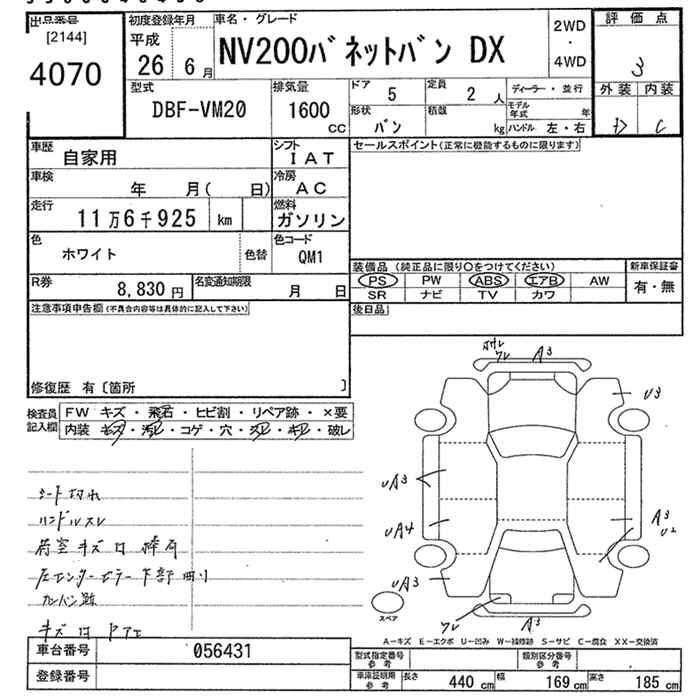 出品番号
[2144]
4070
初度登録年月
平成
26 6月
車名・グレード
NV200バネットバン DX
2WD
・
4WD
評価点
3
外装 内装
D C
型式
DBF-VM20
排気量
1600
CC
ドア
5
定員
2
人
ディーラー・並行
形状
バン
積載
kg
モデル年式
年
ハンドル 左・右
車歴
自家用
シフト
IAT
車検
年 月( 日)
冷房
AC
走行
11万6千925 km
燃料
ガソリン
色
ホワイト
色替
色コード
QM1
R券
8,830円
名変通知期限
月 日
セールスポイント(正常に機能するものに限ります)
装備品(純正品に限り○をつけてください)
PS PW ABS エアB AW
SR ナビ TV カワ
新車保証書
有・無
後日品
注意事項申告欄(不具合内容等は具体的に記入して下さい)
修復歴 有〔箇所 〕
検査員
記入欄
FW キズ・飛石・ヒビ割・リペア跡・×要
内装 キズ・汚レ・コゲ・穴・スレ・キレ・破レ
シート切れ
ハンドルスレ
荷室キズ凹
左センターピラー下部凹り
カンバン跡
キズ凹
ワレ
A3
U3
UA3
UA4
A3
U2
UA3
ワレ
A3
スペア
A-キズ E-エクボ U-凹み W-補修跡 S-サビ C-腐食 XX-交換済
車台番号
056431
登録番号
型式指定番号
参考
類別区分番号
参考
車庫証明用
参考
長さ 440cm 幅 169cm 高さ 185cm